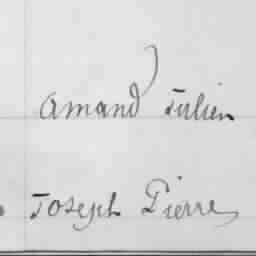 Amand Julien
Joseph Pierre